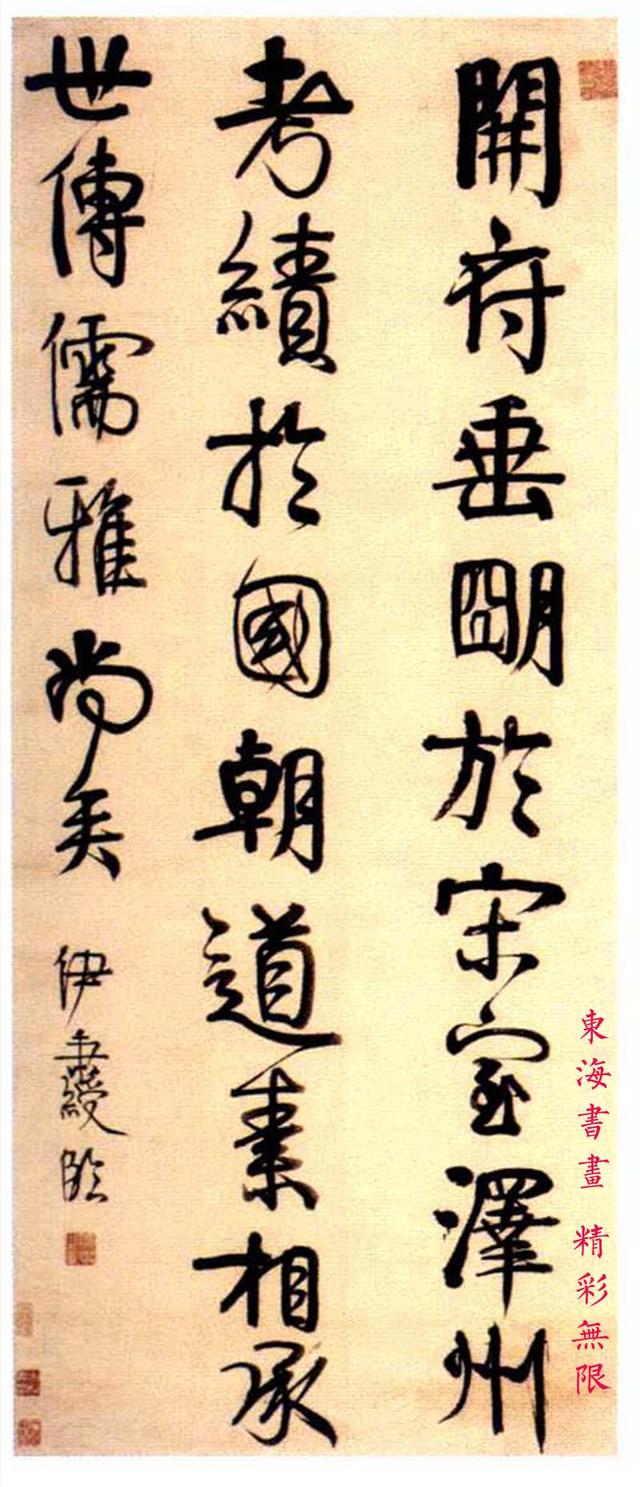 開府垂朙於宋室澤州
考績於國朝道素相承
世傳儒雅尚矣
伊秉綬臨
東海書畫 精彩無限